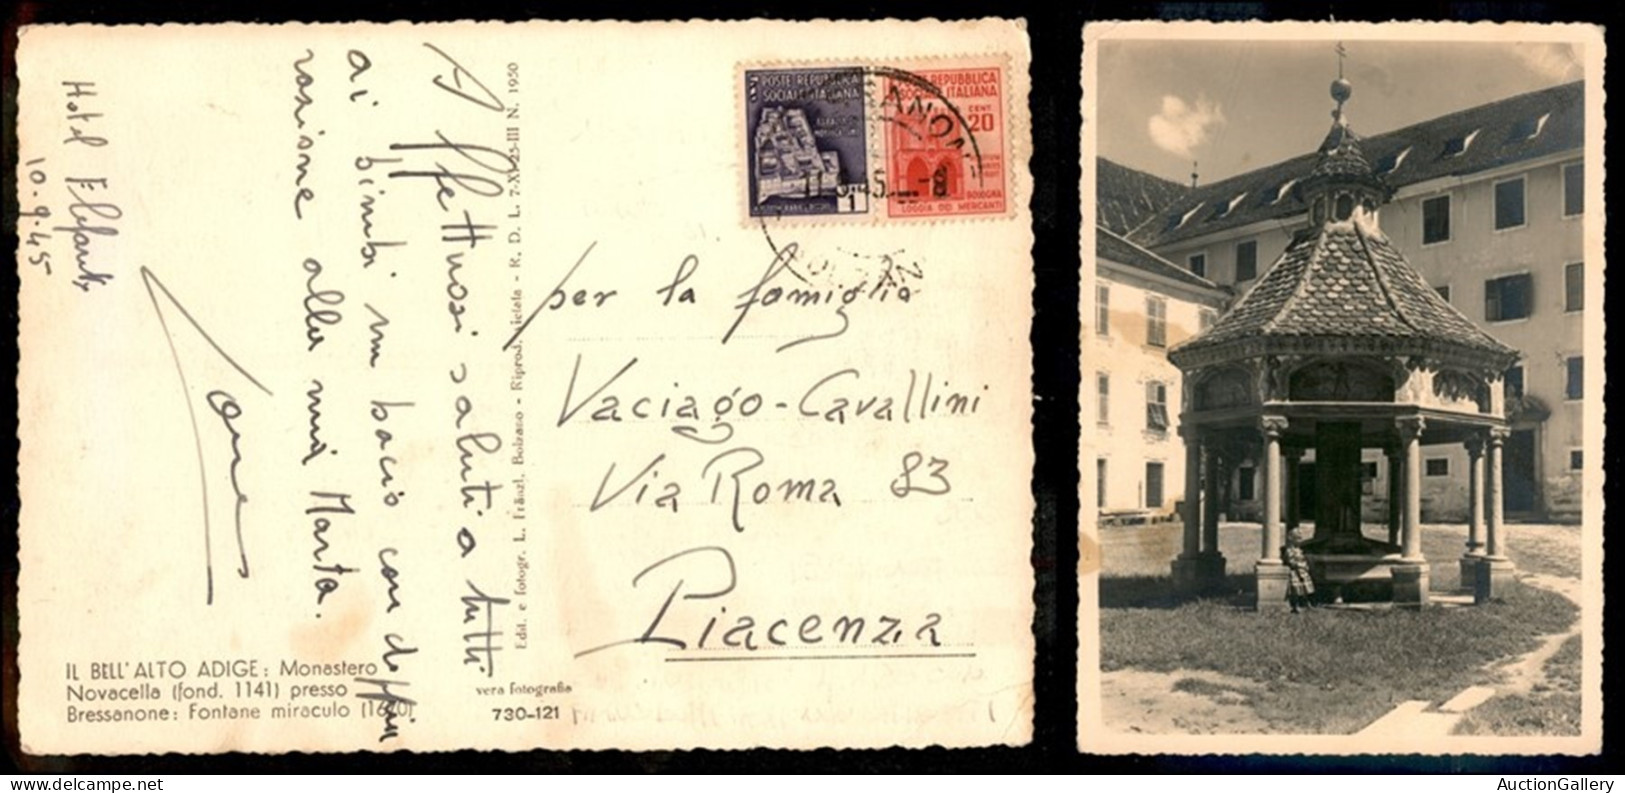 Hotel Elefante
10.9.45
Affettuosi saluti a tutti
ai bimbi un bacio con
alla mia Marta.
IL BELL' ALTO ADIGE: Monastero
Novacella (fond. 1141) presso
Bressanone: Fontane miraculo (1670)
vera fotografia
730-121
Edit. e fotogr. L. Fränzl, Bolzano - Riprod. vietata - R. D. L. 7-XI-25-III N. 1950
POSTE REPUBBLICA
SOCIALE ITALIANA
1
REPUBBLICA
SOCIALE ITALIANA
CENT
20
BOLOGNA
LOGGIA DEI MERCANTI
per la famiglia
Vaciago-Cavallini
Via Roma 83
Piacenza
AuctionGallery